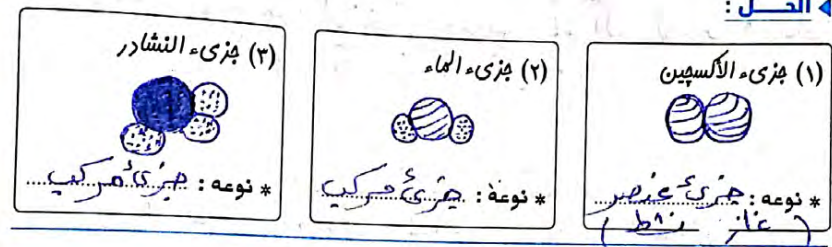 الحـــل :
(١) جزىء الأكسچين
* نوعه : جزئ عنصر
( غاز نشط )
(٢) جزىء الماء
* نوعة : جزئ مركب
(٣) جزىء النشادر
* نوعه : جزئ مركب